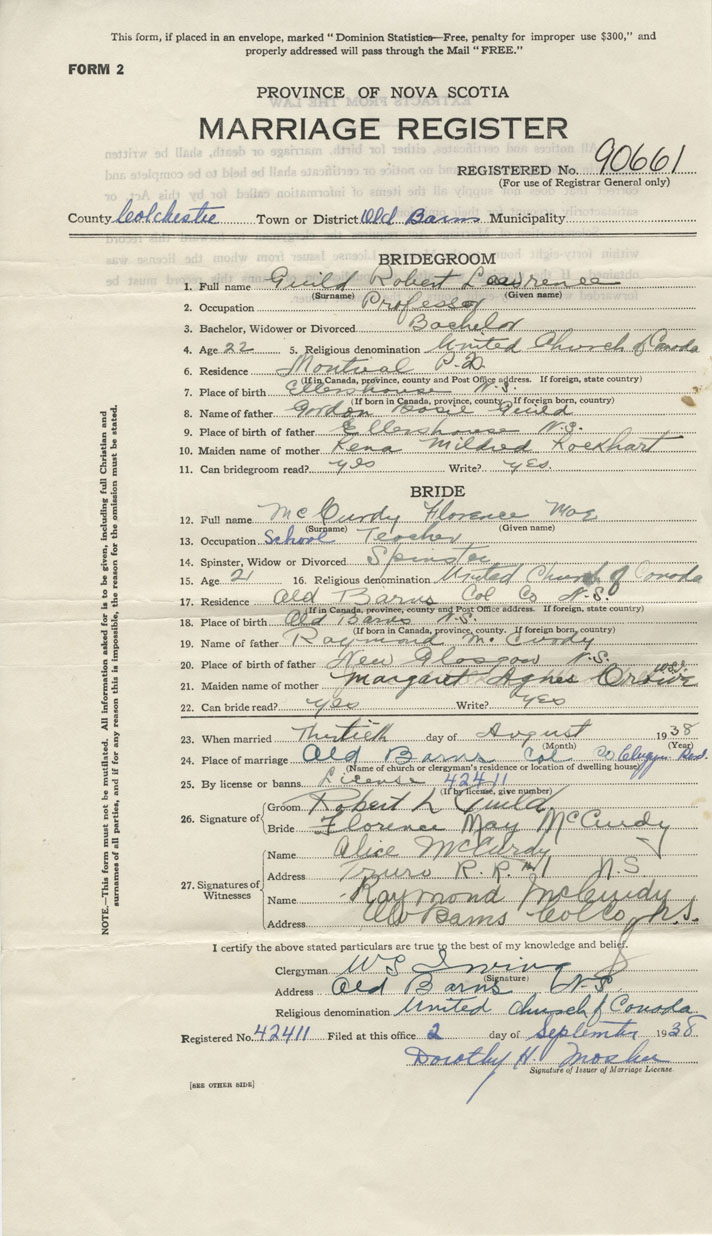 This form, if placed in an envelope, marked "Dominion Statistics—Free, penalty for improper use $300," and
properly addressed will pass through the Mail "FREE."
FORM 2
PROVINCE OF NOVA SCOTIA
MARRIAGE REGISTER
REGISTERED No. 90661
(For use of Registrar General only)
County Colchester Town or District Old Barns Municipality
BRIDEGROOM
1. Full name Guild Robert Lawrence
(Surname) (Given name)
2. Occupation Professor
3. Bachelor, Widower or Divorced Bachelor
4. Age 22 5. Religious denomination United Church of Canada
6. Residence Montreal P.Q.
(If in Canada, province, county and Post Office address. If foreign, state country)
7. Place of birth Ellershouse N.S.
(If born in Canada, province, county. If foreign born, country)
8. Name of father Gordon Guild
9. Place of birth of father Ellershouse N.S.
10. Maiden name of mother Rena Mildred Lockhart
11. Can bridegroom read? yes Write? yes
BRIDE
12. Full name McCurdy Florence May
(Surname) (Given name)
13. Occupation School Teacher
14. Spinster, Widow or Divorced Spinster
15. Age 21 16. Religious denomination United Church of Canada
17. Residence Old Barns Col Co N.S.
(If in Canada, province, county and Post Office address. If foreign, state country)
18. Place of birth Old Barns N.S.
(If born in Canada, province, county. If foreign born, country)
19. Name of father Raymond McCurdy
20. Place of birth of father New Glasgow N.S.
21. Maiden name of mother Margaret Agnes
22. Can bride read? yes Write? yes
23. When married Thirtieth day of August 1938
(Month) (Year)
24. Place of marriage Old Barns Col Co Clergy Res.
(Name of church or clergyman's residence or location of dwelling house)
25. By license or banns License 42411
(If by license, give number)
26. Signature of Groom Robert L Guild
Bride Florence May McCurdy
27. Signatures of Witnesses
Name Alice McCurdy
Address Truro R.R. #1 N.S
Name Raymond McCurdy
Address Old Barns Col Co N.S.
I certify the above stated particulars are true to the best of my knowledge and belief.
Clergyman W S Irving
(Signature)
Address Old Barns N.S.
Religious denomination United Church of Canada
Registered No. 42411 Filed at this office 2 day of September 1938
Dorothy H. Mosher
Signature of Issuer of Marriage License
[SEE OTHER SIDE]
NOTE.—This form must not be mutilated. All information asked for is to be given, including full Christian and
surnames of all parties, and if for any reason this is impossible, the reason for the omission must be stated.